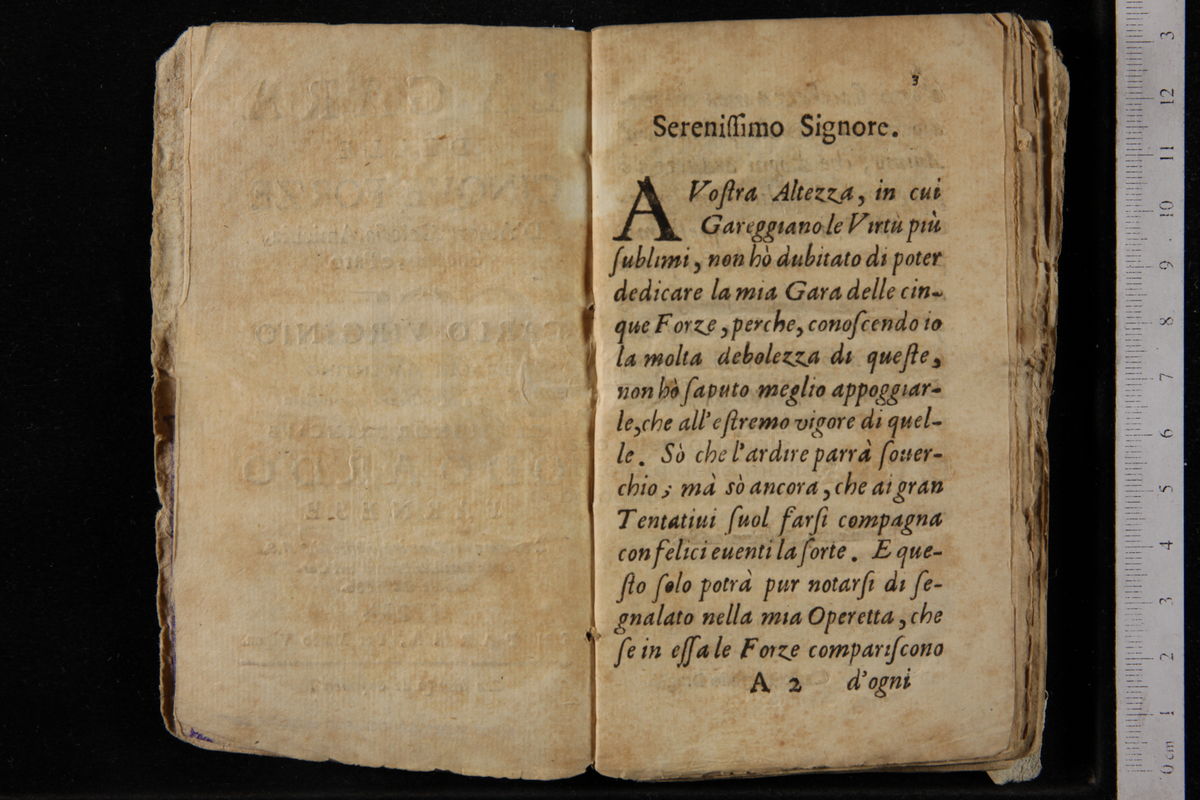 3
Sereniſſimo Signore.
A Voſtra Altezza, in cui
Gareggiano le Virtù più
ſublimi, non hò dubitato di poter
dedicare la mia Gara delle cin-
que Forze, perche, conoſcendo io
la molta debolezza di queſte,
non hò ſaputo meglio appoggiar-
le, che all'eſtremo vigore di quel-
le. Sò che l'ardire parrà ſouer-
chio; mà sò ancora, che ai gran
Tentatiui ſuol farſi compagna
con felici euenti la ſorte. E que-
ſto ſolo potrà pur notarſi di ſe-
gnalato nella mia Operetta, che
ſe in eſſa le Forze compariſcono
A 2 d'ogni
3
12
11
10
9
8
7
6
5
4
3
2
1
0 cm